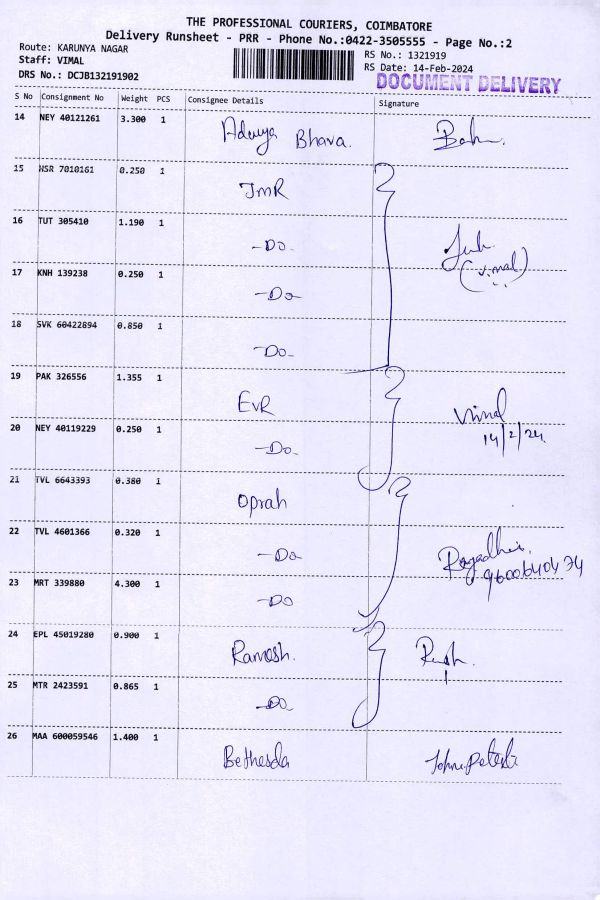 THE PROFESSIONAL COURIERS, COIMBATORE
Delivery Runsheet - PRR - Phone No.:0422-3505555 - Page No.:2
Route: KARUNYA NAGAR
RS No.: 1321919
Staff: VIMAL
RS Date: 14-Feb-2024
DRS No.: DCJB132191902
DOCUMENT DELIVERY
S No Consignment No Weight PCS Consignee Details Signature
14 NEY 40121261 3.300 1 Bhava.
15 HSR 7010161 0.250 1 JMR
16 TUT 305410 1.190 1 -Do-
(Vimal)
17 KNH 139238 0.250 1 -Do-
18 SVK 60422894 0.850 1 -Do-
19 PAK 326556 1.355 1 EVR Vimal
20 NEY 40119229 0.250 1 -Do- 14/2/24
21 TVL 6643393 0.380 1 Oprah
22 TVL 4601366 0.320 1 -Do
23 MRT 339880 4.300 1 -Do 9600640474
24 EPL 45019280 0.900 1 Ramesh.
25 MTR 2423591 0.865 1 -Do-
26 MAA 600059546 1.400 1 Bethesda